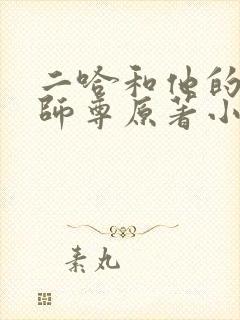 二哈和他的
師尊原著小
素丸